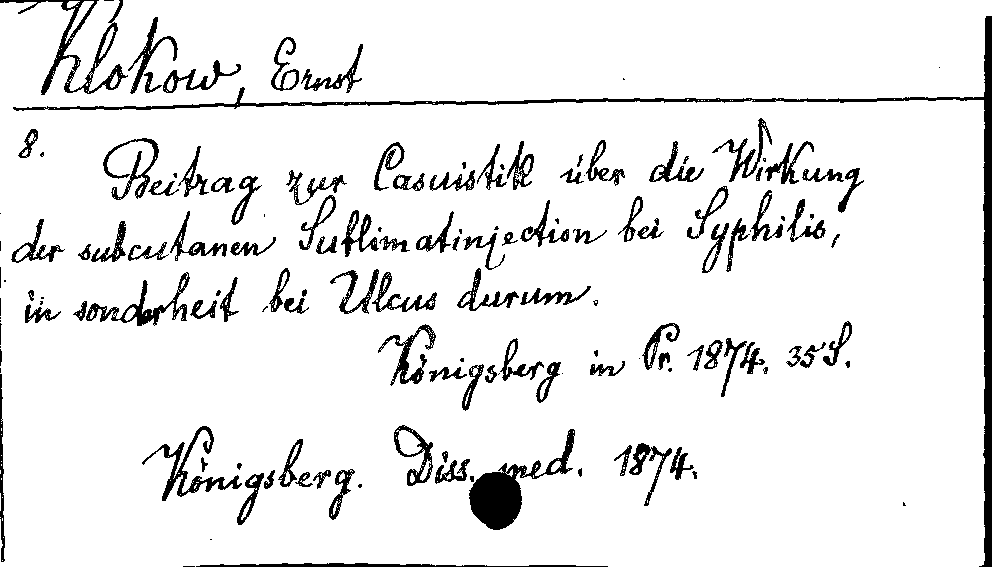 Klokow, Ernst
8.
Beitrag zur Casuistik über die Wirkung
der subcutanen Sublimatinjection bei Syphilis,
in sonderheit bei Ulcus durum.
Königsberg in Pr. 1874. 35 S.
Königsberg. Diss. med. 1874.